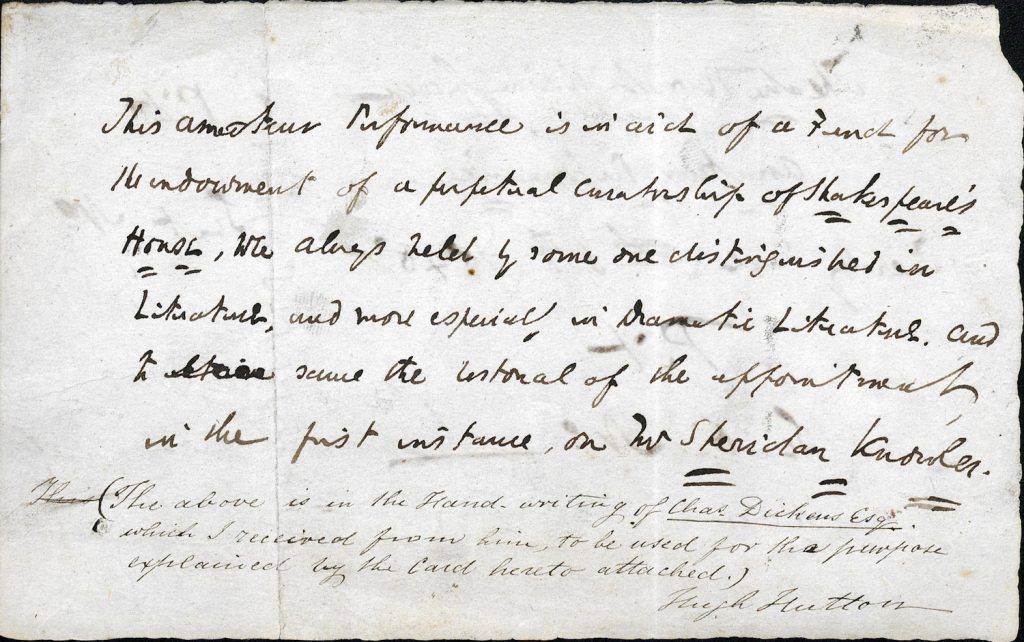 This amateur Performance is in aid of a Fund for
the endowment of a perpetual curatorship of Shakespeare's
House, to be always held by some one distinguished in
Literature, and more especially in Dramatic Literature. and
to secure the of the appointment,
in the first instance, on Mr Sheridan Knowles.
This (The above is in the Hand-writing of Chas Dickens Esqr.
which I received from him, to be used for the purpose
explained by the Card hereto attached.)
Hugh Hutton